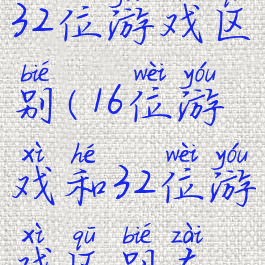 32位游戏区
bié wèi yóu
别(16位游
xì hé wèi yóu
戏和32位游
xì qū bié zài
戏区别